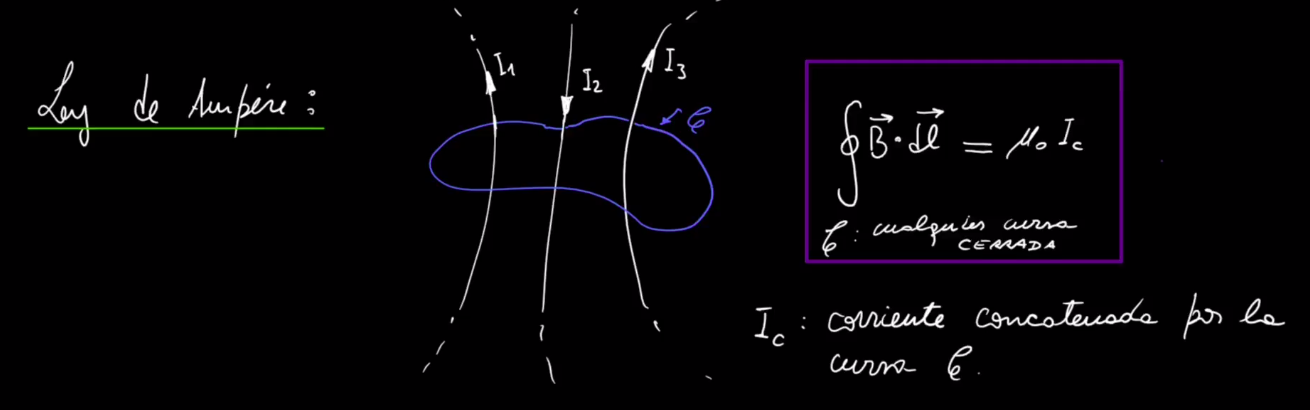 Ley de Ampére:
I1
I2
I3
C
∮ B⃗ · dl⃗ = μ₀ Ic
C: cualquier curva
CERRADA
Ic: corriente concatenada por la
curva C.